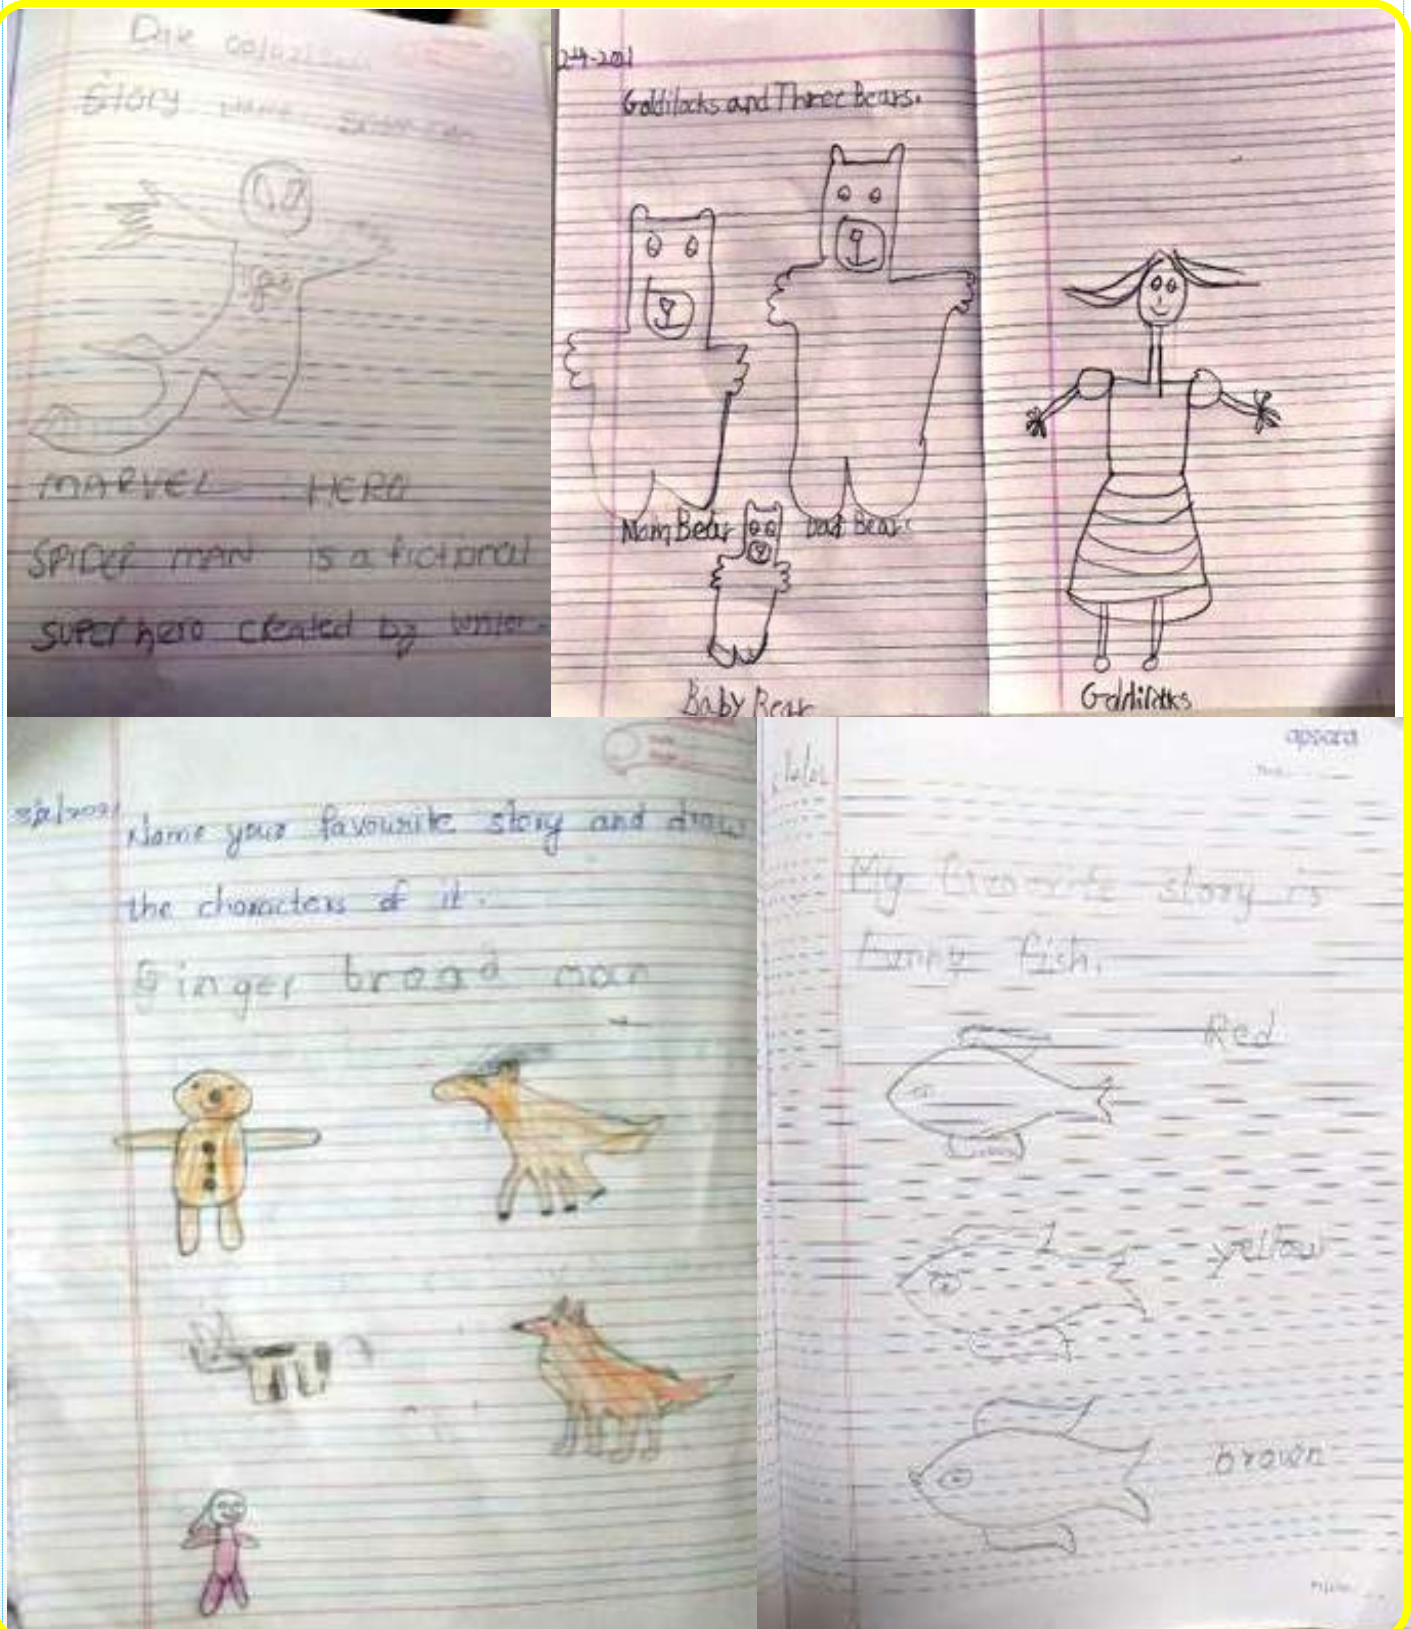 Date
Story name spiderman
MARVEL HERO
SPIDER MAN is a fictional
super hero created by writer.
Goldilocks and Three Bears.
Mom Bear
Dad Bear
Baby Bear
Goldilocks
Name your favourite story and draw
the characters of it.
Ginger bread man
apsara
My favourite story is
funny fish.
Red
yellow
brown